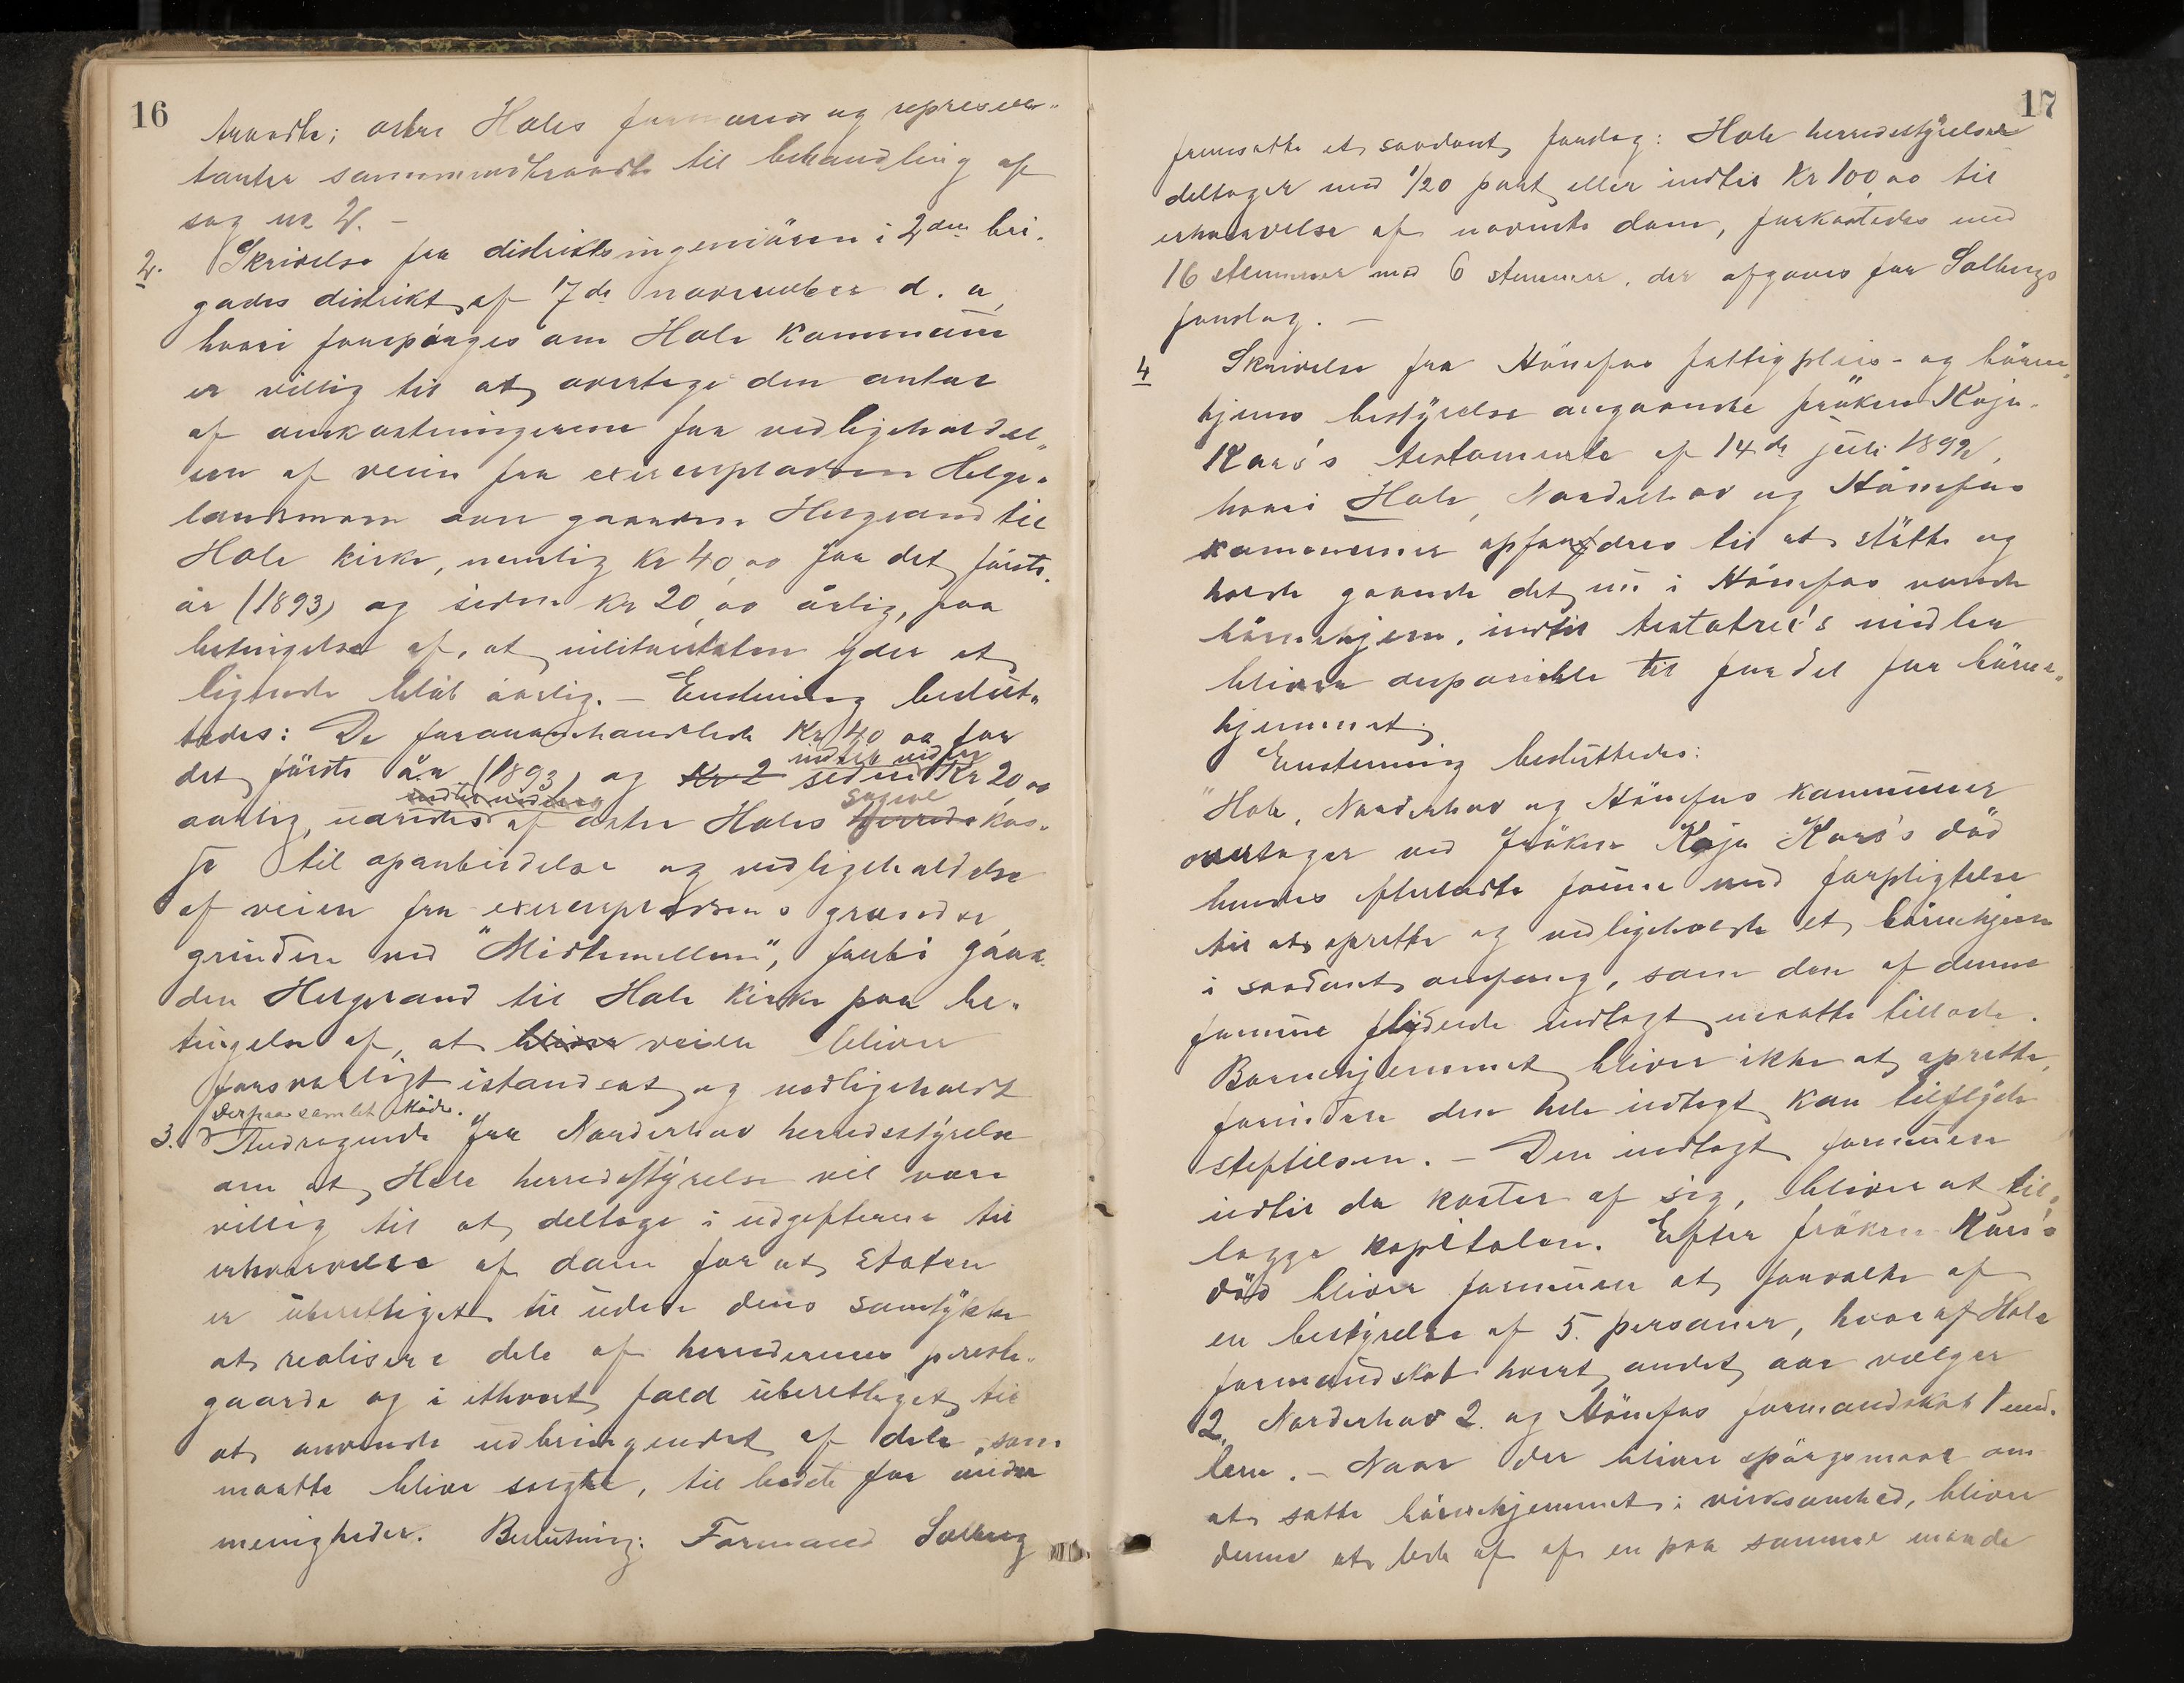 16
traadte; østre Holes formænd og represen-
tanter sammentraadte til behandling af
sag nr 2. -
2. Skrivelse fra distriktsingeniören i 2den bri-
gades distrikt af 7de november d. a,
hvori forespörges om Hole kommune
er villig til at overtage den antar
af omkostningerne for vedligeholdel-
sen af veien fra exercerpladsen Helge-
landsmoen over gaarden Helgerand til
Hole kirke, nemlig Kr 40,00 for det förste
år (1893) og siden Kr 20,00 årlig, paa
betingelse af, at militæretaten yder et
lignende belöb aarlig. - Enstemmig beslut-
tedes: De foranomhandlede Kr 40,00 for
det förste år (1893) og Kr 2 siden indtil videre Kr 20,00
aarlig, indtil videre udredes af östre Holes herreds sogne kas-
se til oparbeidelse og vedligeholdelse
af veien fra exercerpladsens grændse
grinden ved "Midtemellem", forbi gaar-
den Helgerand til Hole kirke paa be-
tingelse af, at bliver veien bliver
forsvarligt istandsat og vedligeholdt
Derpaa samlet Möde.
3. Andragende fra Norderhov herredsstyrelse
om at Hole herredsstyrelse vil være
villig til at deltage i udgifterne til
erhvervelse af dom for at Staten
er uberettiget til uden dens samtykke
at realisere dele af herredernes preste-
gaarde og i ethvert fald uberettiget til
at anvende udbringendet af dele, som
maatte blive solgte, til bedste for andre
menigheder. Beslutning: Formand Solberg
17
fremsatte et saadant forslag: Hole herredsstyrelse
deltager med 1/20 part eller indtil Kr 100,00 til
erhvervelse af nævnte dom, forkastedes med
16 stemmer mod 6 stemmer, der afgaves for Solbergs
forslag. -
4 Skrivelse fra Hönefos fattigpleis- og börne-
hjems bestyrelse angaaende fröken Kaja
Kors's testamente af 14de juli 1892,
hvori Hole, Norderhov og Hönefos
kommuner opfordres til at stötte og
holde gaaende det nu i Hönefos værende
börnehjem, indtil testatrice's midler
bliver disponible til fordel for börne-
hjemmet.
Enstemmig besluttedes:
"Hole, Norderhov og Hönefos kommuner
overtager ved fröken Kaja Kors's död
hendes efterladte formue med forpligtelse
til at oprette og vedligeholde et börnehjem
i saadant omfang, som den af denne
formue flydende indtægt maatte tillade.
Barnehjemmet bliver ikke at oprette,
forinden den hele indtægt kan tilflyde
stiftelsen. - Den indtægt formuen
indtil da kaster af sig, bliver at til-
lægge kapitalen. Efter fröken Kors's
död bliver formuen at forvalte af
en bestyrelse af 5 personer, hvoraf Hole
formandskab hvert andet aar vælger
2, Norderhov 2 og Hönefos formandskab 1 med-
lem. - Naar der bliver spörgsmaal om
at sætte börnehjemmet i virksomhed, bliver
denne at lede af af en paa samme maade